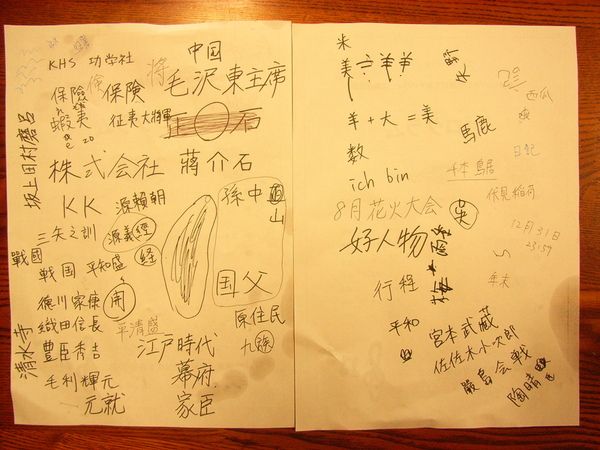 KHS 功学社
中国
保險 保険
将
毛沢東主席
蝦夷
征夷大将軍
石
坂上田村麿呂
株式会社 蔣介石
KK 源頼朝
孫中山
三矢之訓 源義経
経
戰國
戦国 平知盛
国父
徳川家康
開
織田信長 平清盛
原住民
清水寺
豊臣秀吉 江戸時代
九
毛利輝元 幕府
元就 家臣
米
美
羊+大=美
西瓜
馬鹿
数
日記
ich bin
千本鳥居
8月花火大会
伏見稲荷
好人物
12月31日
23:59
行程
年末
平和
宮本武蔵
佐佐木小次郎
厳島会戦
陶晴